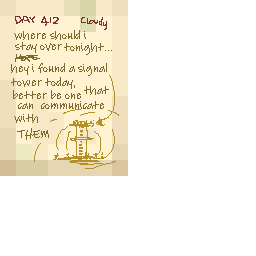 DAY 412 Cloudy
where should i
stay over tonight...
hey i found a signal
tower today,
better be one that
can communicate
with
THEM